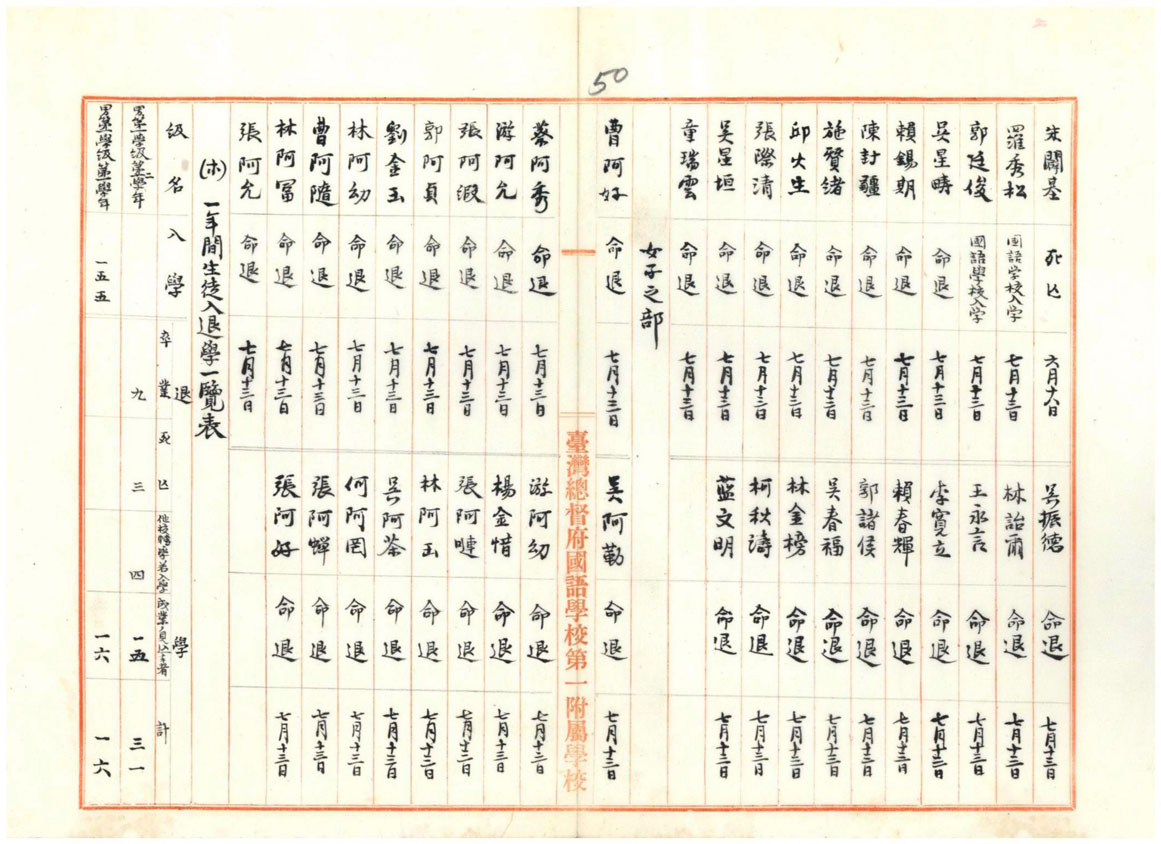 50
朱闢基 死亡 六月十八日 吳振德 命退 七月十三日
羅秀松 國語学校入学 七月十三日 林詒爾 命退 七月十三日
郭廷俊 國語學校入学 七月十三日 王永言 命退 七月十三日
吳星疇 命退 七月十三日 李寬立 命退 七月十三日
賴錫期 命退 七月十三日 賴春輝 命退 七月十三日
陳討疆 命退 七月十三日 郭諸侯 命退 七月十三日
施賢緒 命退 七月十三日 吳春福 命退 七月十三日
邱火生 命退 七月十三日 林金榜 命退 七月十三日
張際清 命退 七月十三日 柯秋濤 命退 七月十三日
吳星垣 命退 七月十三日 蓝文明 命退 七月十三日
童瑞雲 命退 七月十三日
女子之部
曹阿好 命退 七月十三日 吳阿勤 命退 七月十三日
臺灣總督府國語學校第一附屬學校
蔡阿秀 命退 七月十三日 游阿幼 命退 七月十三日
游阿允 命退 七月十三日 楊金惜 命退 七月十三日
張阿溵 命退 七月十三日 張阿嗹 命退 七月十三日
郭阿貞 命退 七月十三日 林阿玉 命退 七月十三日
劉金玉 命退 七月十三日 吳阿茶 命退 七月十三日
林阿幼 命退 七月十三日 何阿罔 命退 七月十三日
曹阿隨 命退 七月十三日 張阿蟬 命退 七月十三日
林阿冨 命退 七月十三日 張阿好 命退 七月十三日
張阿允 命退 七月十三日
(ホ) 一年間生徒入退學一覽表
級名 入學 退學
卒業 死亡 他校轉學若入學 成業ノ見込ナキ者 計
男第一學級第二學年 九 三 四 一五 三一
男第一學級第一學年 一五五 一六 一六